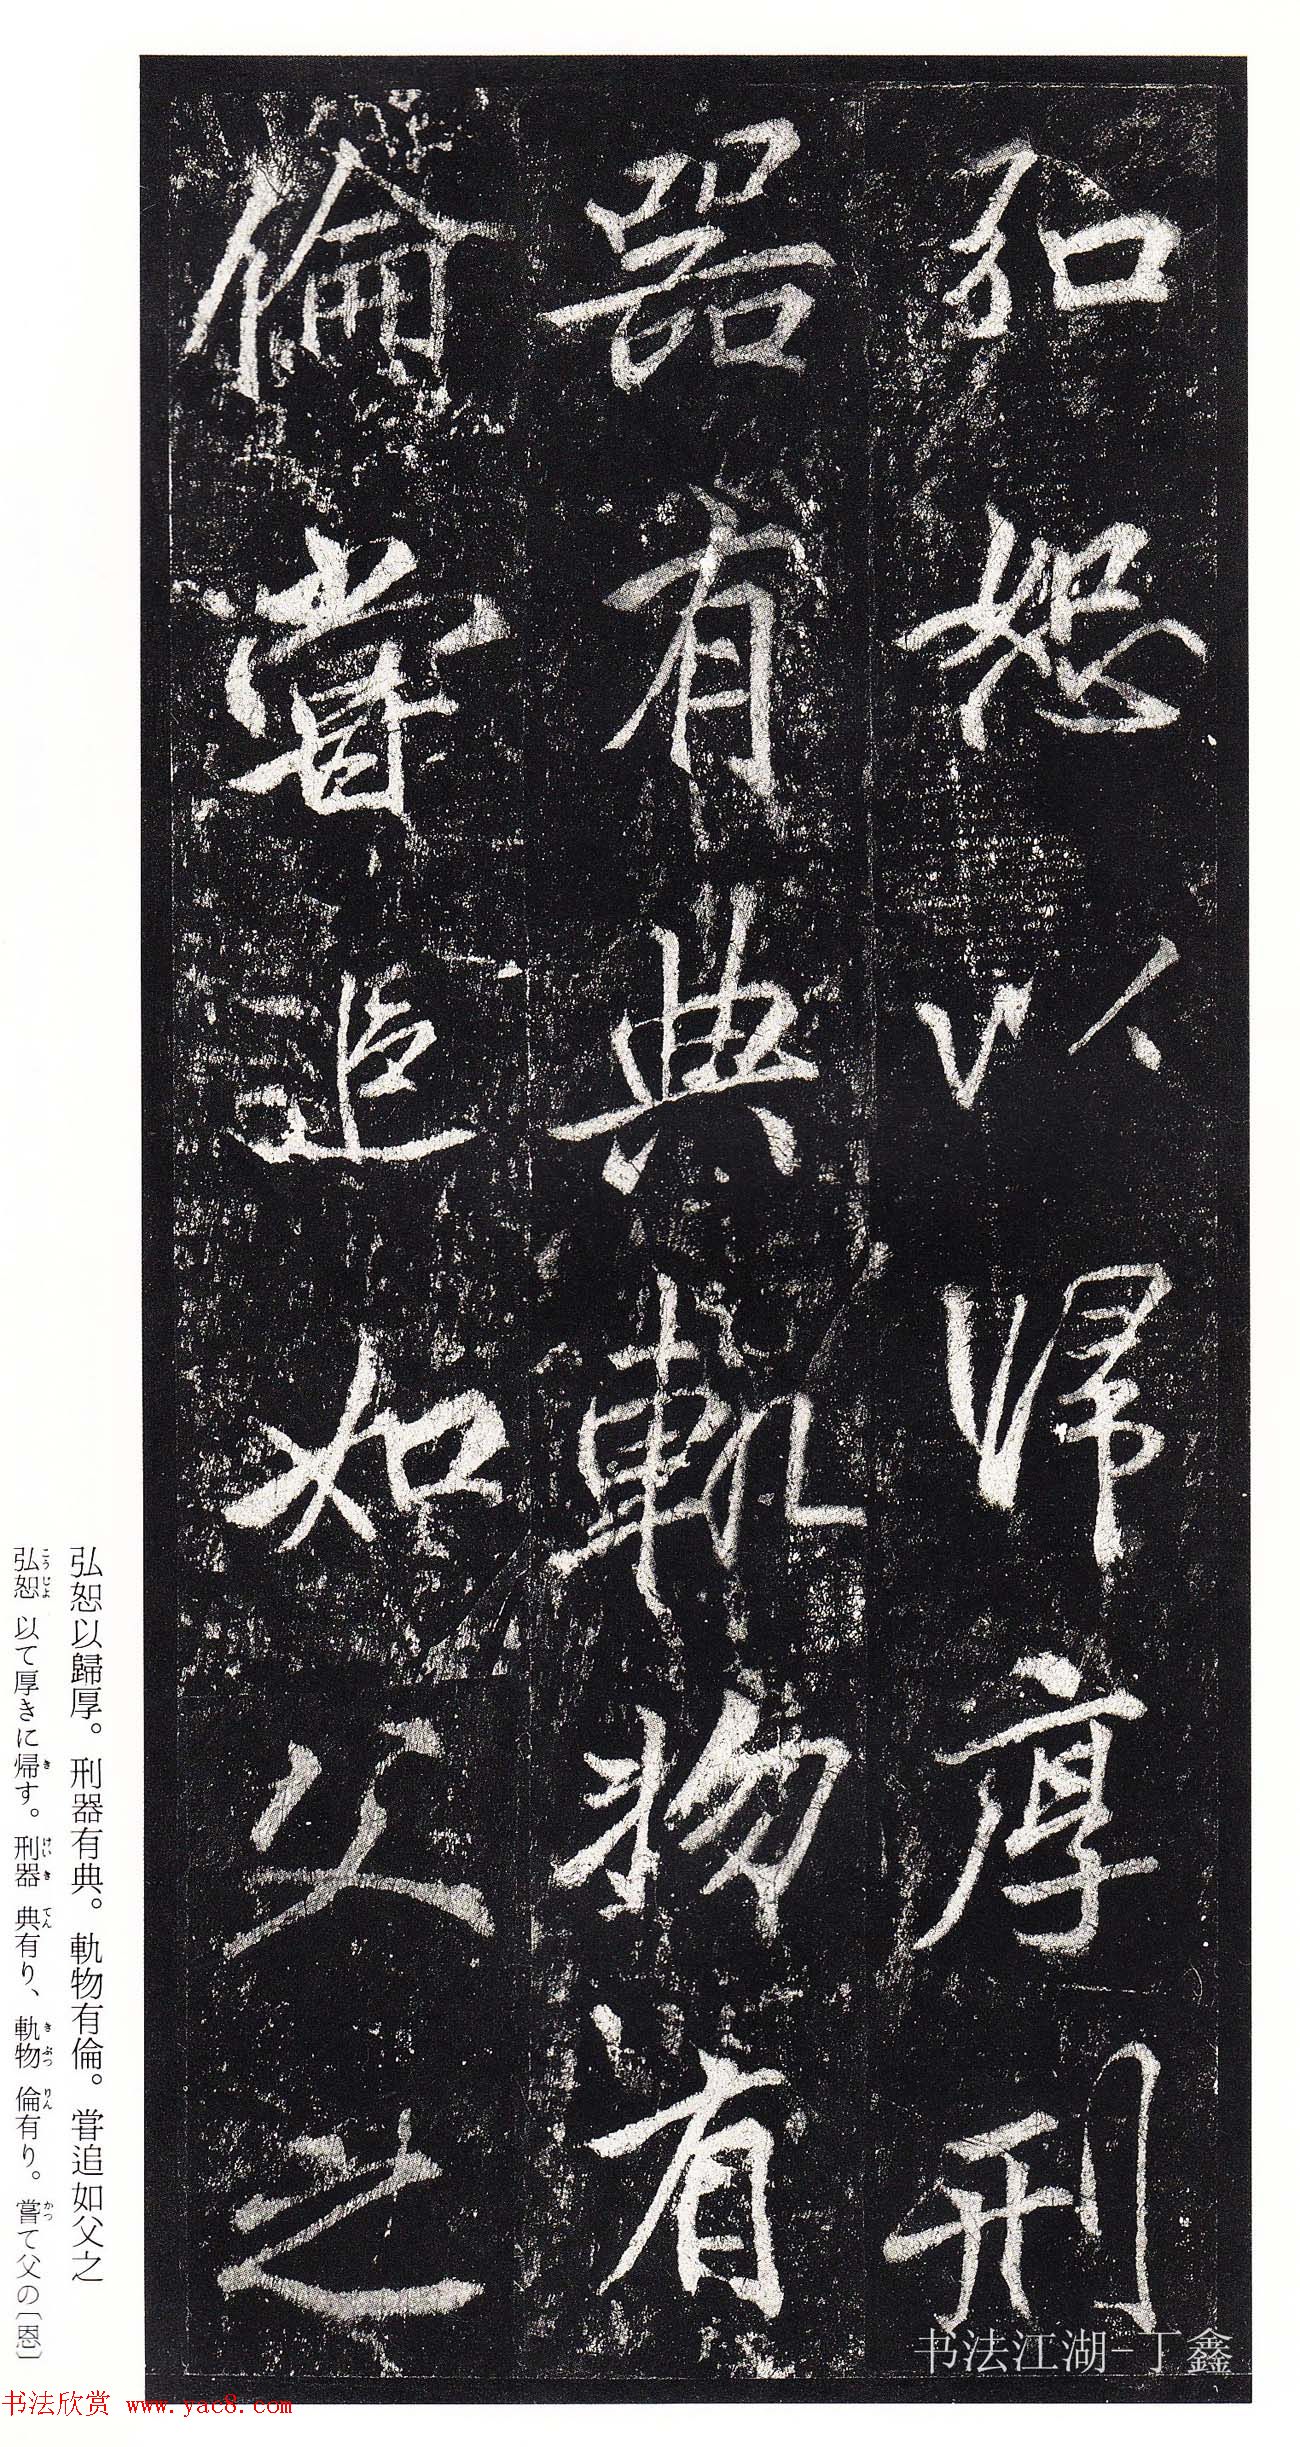 弘恕以歸厚刑
器有典軌物有
倫甞追如父之
弘恕以歸厚。刑器有典。軌物有倫。甞追如父之
弘恕以て厚きに帰す。刑器典有り、軌物倫有り。嘗て父の〔恩〕
书法江湖-丁鑫
书法欣赏 www.yac8.com